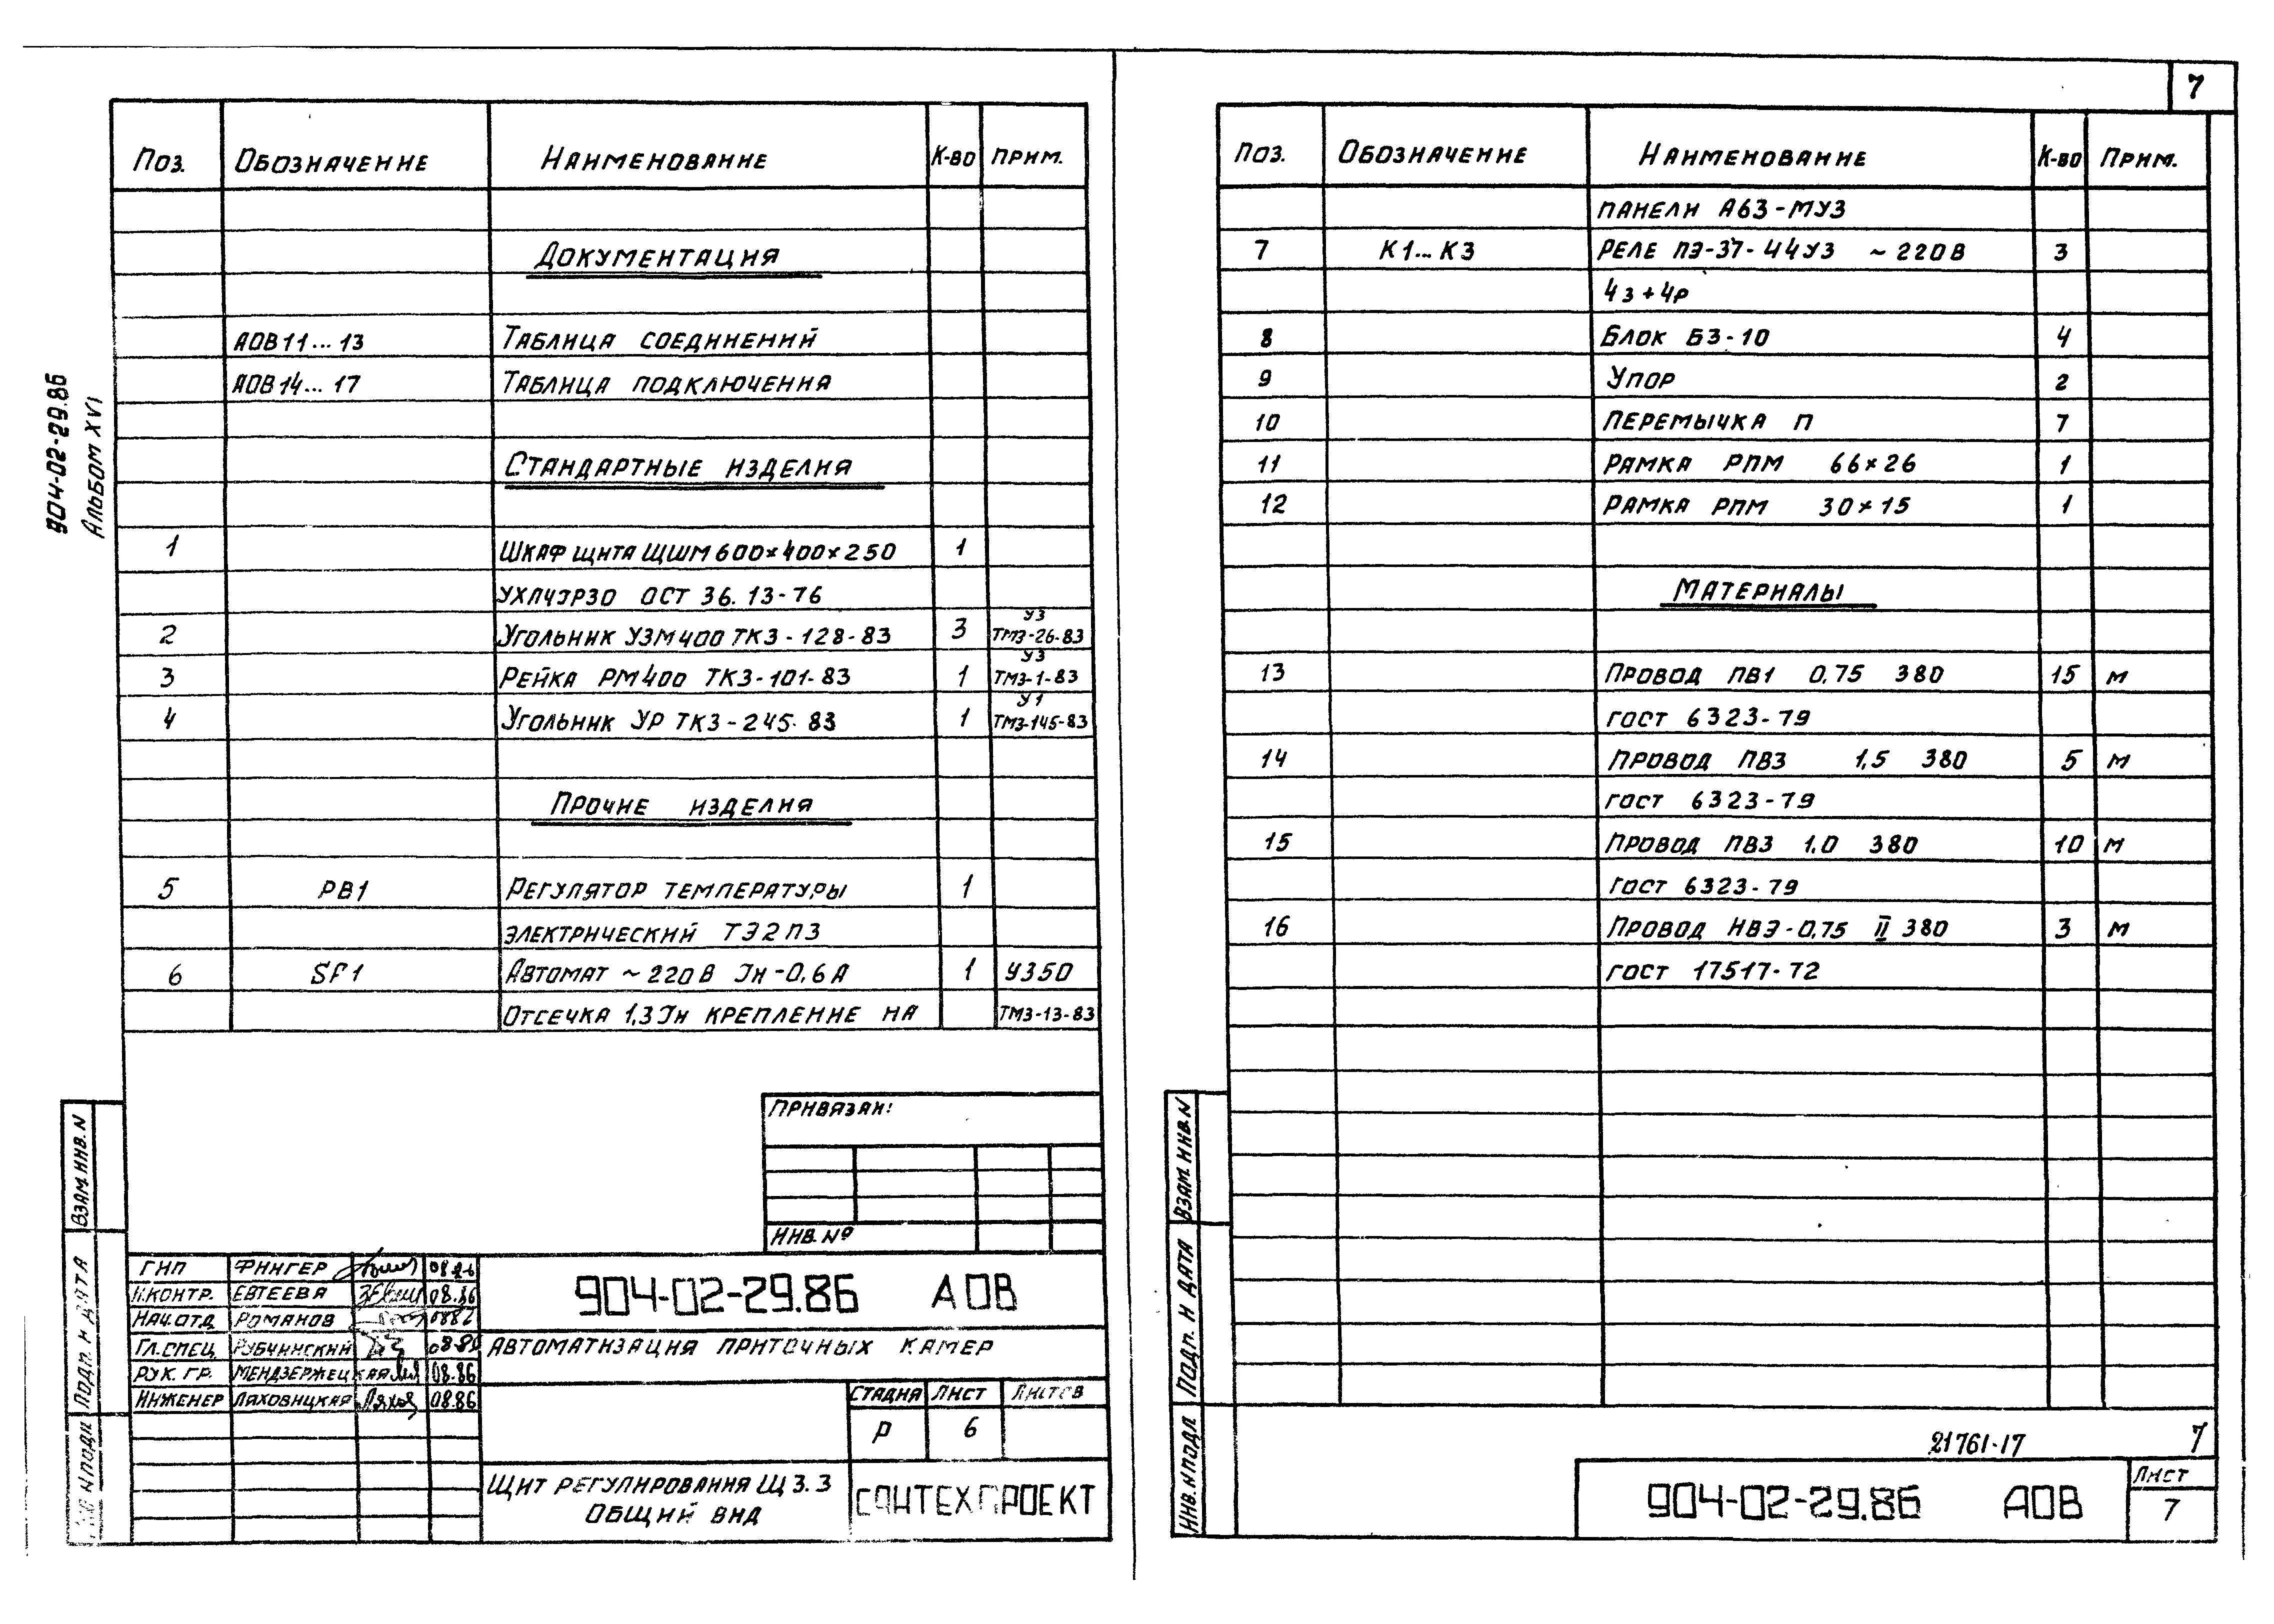 904-02-29.86
Альбом XVI
Поз. Обозначение Наименование К-во Прим.
Документация
АОВ11...13 Таблица соединений
АОВ14...17 Таблица подключения
Стандартные изделия
1 Шкаф щита ЩШМ 600×400×250 1
УХЛ4JР30 ОСТ 36.13-76
2 Угольник УЗМ400 ТКЗ-128-83 3 У3 ТМЗ-26-83
3 Рейка РМ400 ТКЗ-101-83 1 У3 ТМЗ-1-83
4 Угольник УР ТКЗ-245-83 1 У1 ТМЗ-145-83
Прочие изделия
5 РВ1 Регулятор температуры 1
электрический ТЭ2П3
6 SF1 Автомат ~220В Iн-0,6А 1 У350
Отсечка 1,3Iн крепление на ТМЗ-13-83
Привязан:
Инв. №
Взам. инв. N
Подп. и дата
Инв. N подл
ГИП Фингер 08.86
Н.контр. Евтеева 08.86
Нач.отд Романов
Гл.спец. Рубчинский 08.86
Рук. гр. Мендзержецкая 08.86
Инженер Ляховицкая 08.86
904-02-29.86 АОВ
Автоматизация приточных камер
Стадия Лист Листов
Р 6
Щит регулирования Щ3.3
Общий вид
САНТЕХПРОЕКТ
7
Поз. Обозначение Наименование К-во Прим.
панели А63-МУ3
7 К1...К3 Реле ПЭ-37-44У3 ~220В 3
4з+4р
8 Блок БЗ-10 4
9 Упор 2
10 Перемычка П 7
11 Рамка РПМ 66×26 1
12 Рамка РПМ 30×15 1
Материалы
13 Провод ПВ1 0,75 380 15 м
ГОСТ 6323-79
14 Провод ПВ3 1,5 380 5 м
ГОСТ 6323-79
15 Провод ПВ3 1.0 380 10 м
ГОСТ 6323-79
16 Провод НВЭ-0,75 II 380 3 м
ГОСТ 17517-72
Взам. инв. N
Подп. и дата
Инв. N подл
21761-17 7
904-02-29.86 АОВ
Лист
7